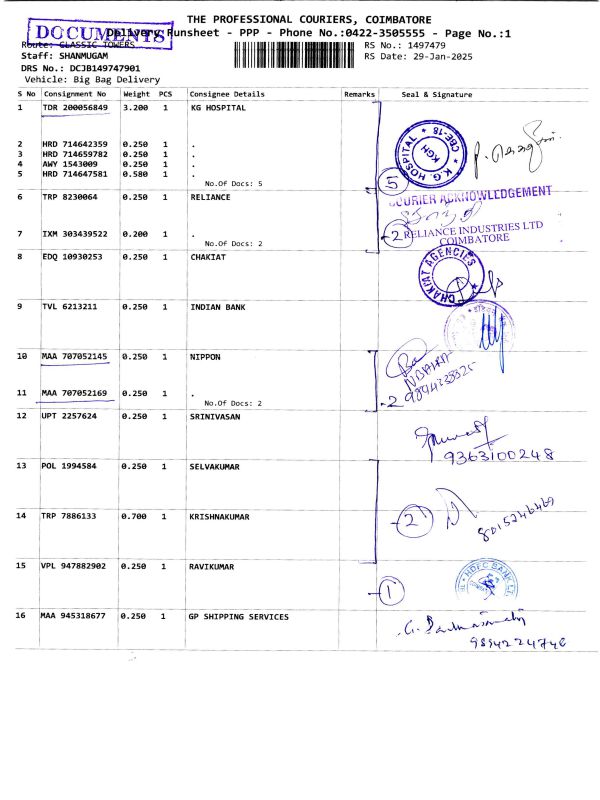 THE PROFESSIONAL COURIERS, COIMBATORE
DOCUMENTS
Delivery Runsheet - PPP - Phone No.:0422-3505555 - Page No.:1
Route: CLASSIC TOWERS RS No.: 1497479
Staff: SHANMUGAM RS Date: 29-Jan-2025
DRS No.: DCJB149747901
Vehicle: Big Bag Delivery
S No Consignment No Weight PCS Consignee Details Remarks Seal & Signature
1 TDR 200056849 3.200 1 KG HOSPITAL
2 HRD 714642359 0.250 1 .
3 HRD 714659782 0.250 1 .
4 AWY 1543009 0.250 1 .
5 HRD 714647581 0.580 1 .
No.Of Docs: 5
K.G. HOSPITAL CBE-18 KGH
5
6 TRP 8230064 0.250 1 RELIANCE
COURIER ACKNOWLEDGEMENT
7 IXM 303439522 0.200 1 .
No.Of Docs: 2
2
RELIANCE INDUSTRIES LTD
COIMBATORE
8 EDQ 10930253 0.250 1 CHAKIAT
CHAKIAT AGENCIES
9 TVL 6213211 0.250 1 INDIAN BANK
10 MAA 707052145 0.250 1 NIPPON
11 MAA 707052169 0.250 1 .
No.Of Docs: 2
2
12 UPT 2257624 0.250 1 SRINIVASAN
9363100248
13 POL 1994584 0.250 1 SELVAKUMAR
14 TRP 7886133 0.700 1 KRISHNAKUMAR
2
8015246469
15 VPL 947882902 0.250 1 RAVIKUMAR
HDFC BANK LTD
1
16 MAA 945318677 0.250 1 GP SHIPPING SERVICES
9894224746